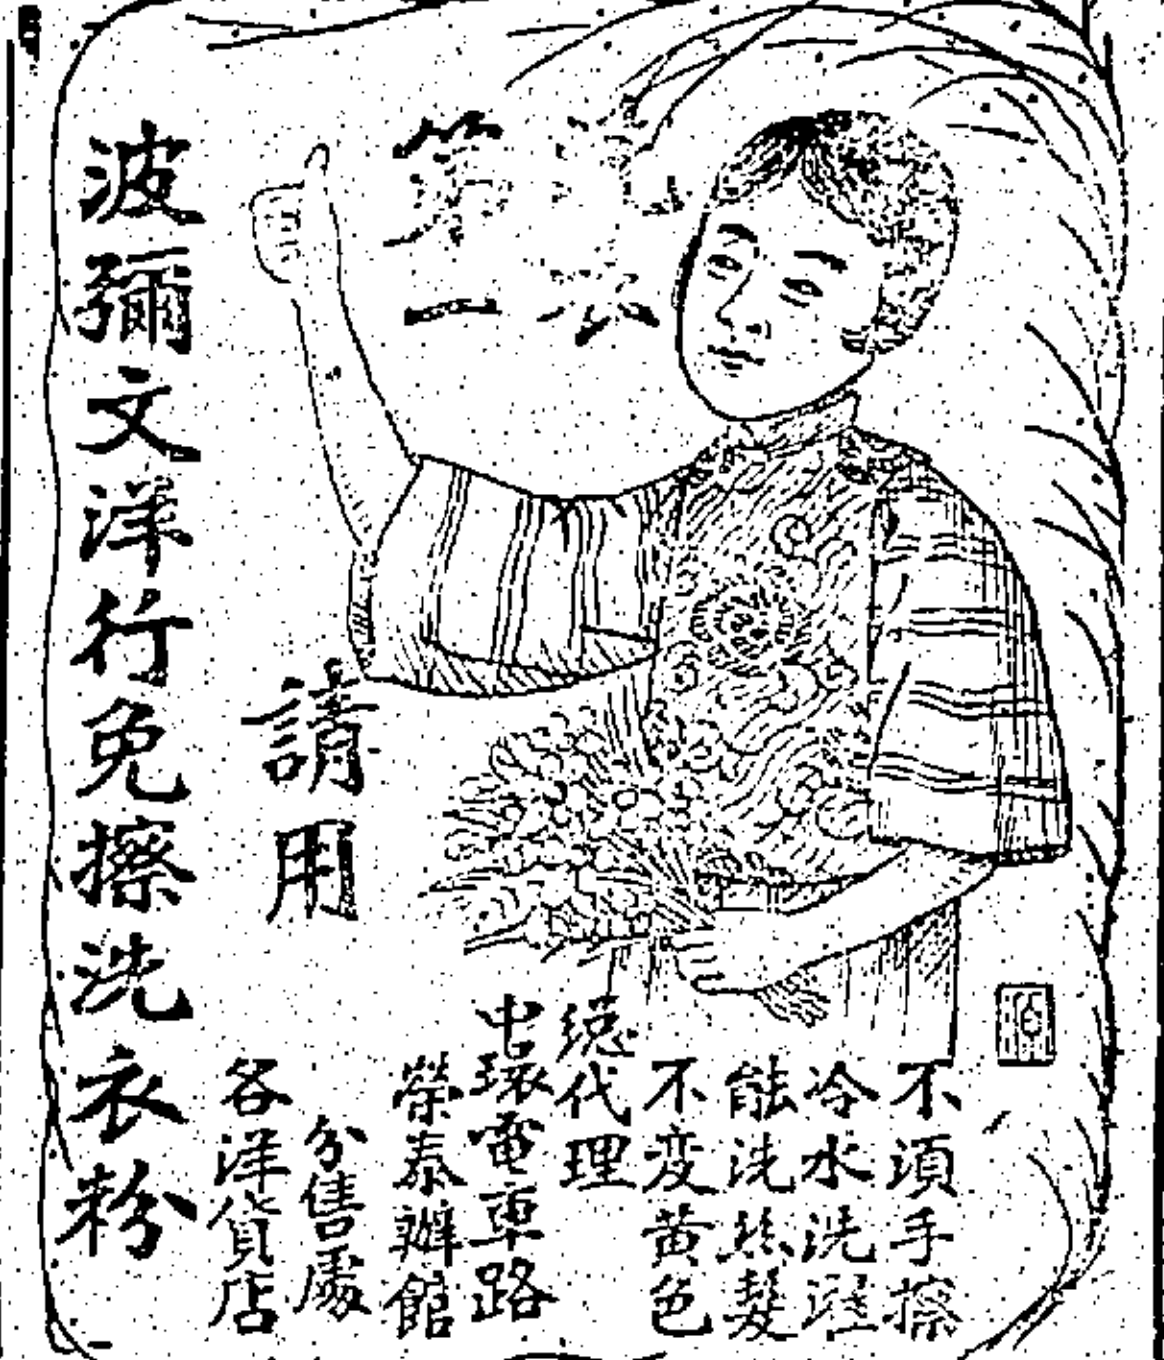 第一
不須手擦
冷水洗濯
能洗絲髮
不变黄色
總代理
中環電車路
榮泰辦館
分售處
各洋貨店
請用
波彌文洋行免擦洗衣粉